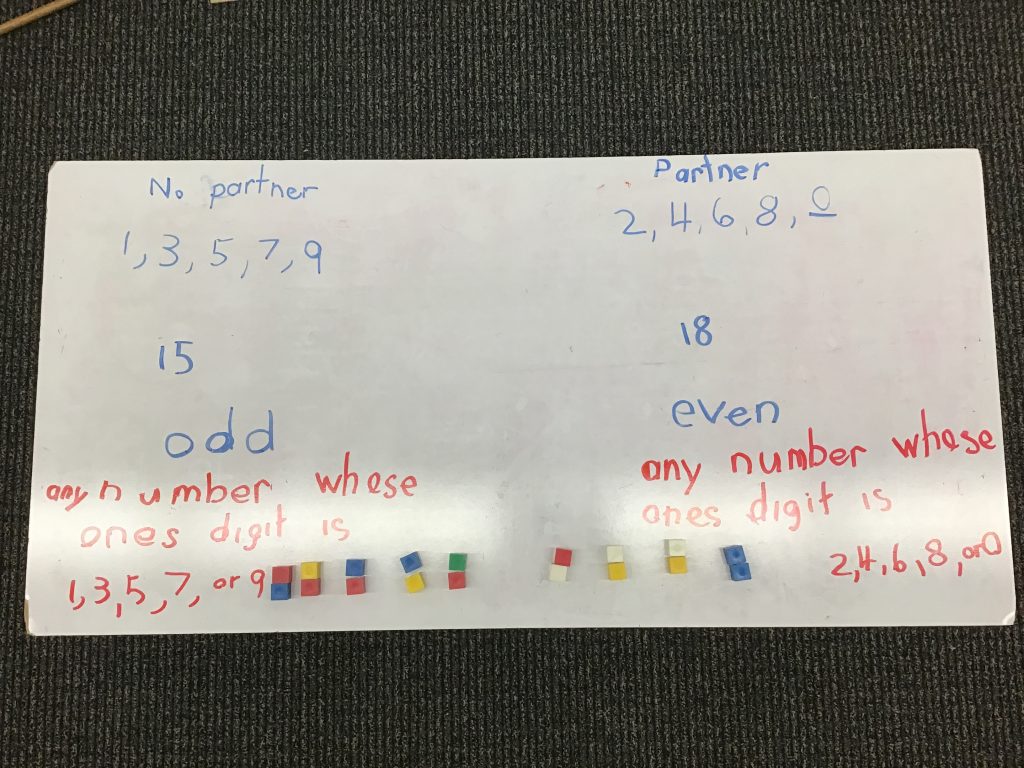 No partner
1, 3, 5, 7, 9
15
odd
any number whose
ones digit is
1, 3, 5, 7, or 9
Partner
2, 4, 6, 8, 0
18
even
any number whose
ones digit is
2, 4, 6, 8, or 0